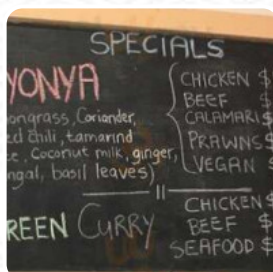 SPECIALS
YONYA
ongrass, Coriander,
ed chili, tamarind
e, Coconut milk, ginger,
ngal, basil leaves)
CHICKEN $
BEEF $
CALAMARI $
PRAWNS $
VEGAN $
REEN CURRY
CHICKEN $
BEEF $
SEAFOOD $